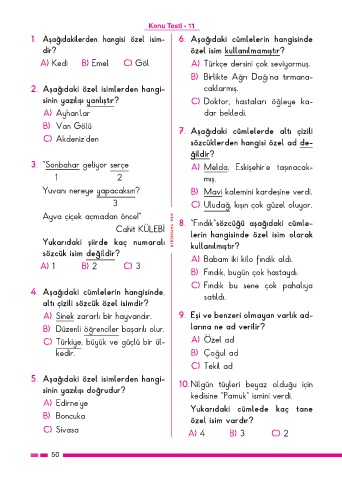 Konu Testi - 11
1. Aşağıdakilerden hangisi özel isim-
dir?
A) Kedi B) Emel C) Göl
2. Aşağıdaki özel isimlerden hangi-
sinin yazılışı yanlıştır?
A) Ayhan'lar
B) Van Gölü
C) Akdeniz'den
3. "Sonbahar geliyor serçe
1 2
Yuvanı nereye yapacaksın?
3
Ayva çiçek açmadan önce!"
Cahit KÜLEBİ
Yukarıdaki şiirde kaç numaralı
sözcük isim değildir?
A) 1 B) 2 C) 3
4. Aşağıdaki cümlelerin hangisinde,
altı çizili sözcük özel isimdir?
A) Sinek zararlı bir hayvandır.
B) Düzenli öğrenciler başarılı olur.
C) Türkiye, büyük ve güçlü bir ül-
kedir.
5. Aşağıdaki özel isimlerden hangi-
sinin yazılışı doğrudur?
A) Edirne'ye
B) Boncuka
C) Sivasa
6. Aşağıdaki cümlelerin hangisinde
özel isim kullanılmamıştır?
A) Türkçe dersini çok seviyormuş.
B) Birlikte Ağrı Dağı'na tırmana-
caklarmış.
C) Doktor, hastaları öğleye ka-
dar bekledi.
7. Aşağıdaki cümlelerde altı çizili
sözcüklerden hangisi özel ad de-
ğildir?
A) Melda, Eskişehir'e taşınacak-
mış.
B) Mavi kalemini kardeşine verdi.
C) Uludağ, kışın çok güzel oluyor.
8. "Fındık" sözcüğü aşağıdaki cümle-
lerin hangisinde özel isim olarak
kullanılmıştır?
A) Babam iki kilo fındık aldı.
B) Fındık, bugün çok hastaydı.
C) Fındık bu sene çok pahalıya
satıldı.
9. Eşi ve benzeri olmayan varlık ad-
larına ne ad verilir?
A) Özel ad
B) Çoğul ad
C) Tekil ad
10. Nilgün tüyleri beyaz olduğu için
kedisine "Pamuk" ismini verdi.
Yukarıdaki cümlede kaç tane
özel isim vardır?
A) 4 B) 3 C) 2
50